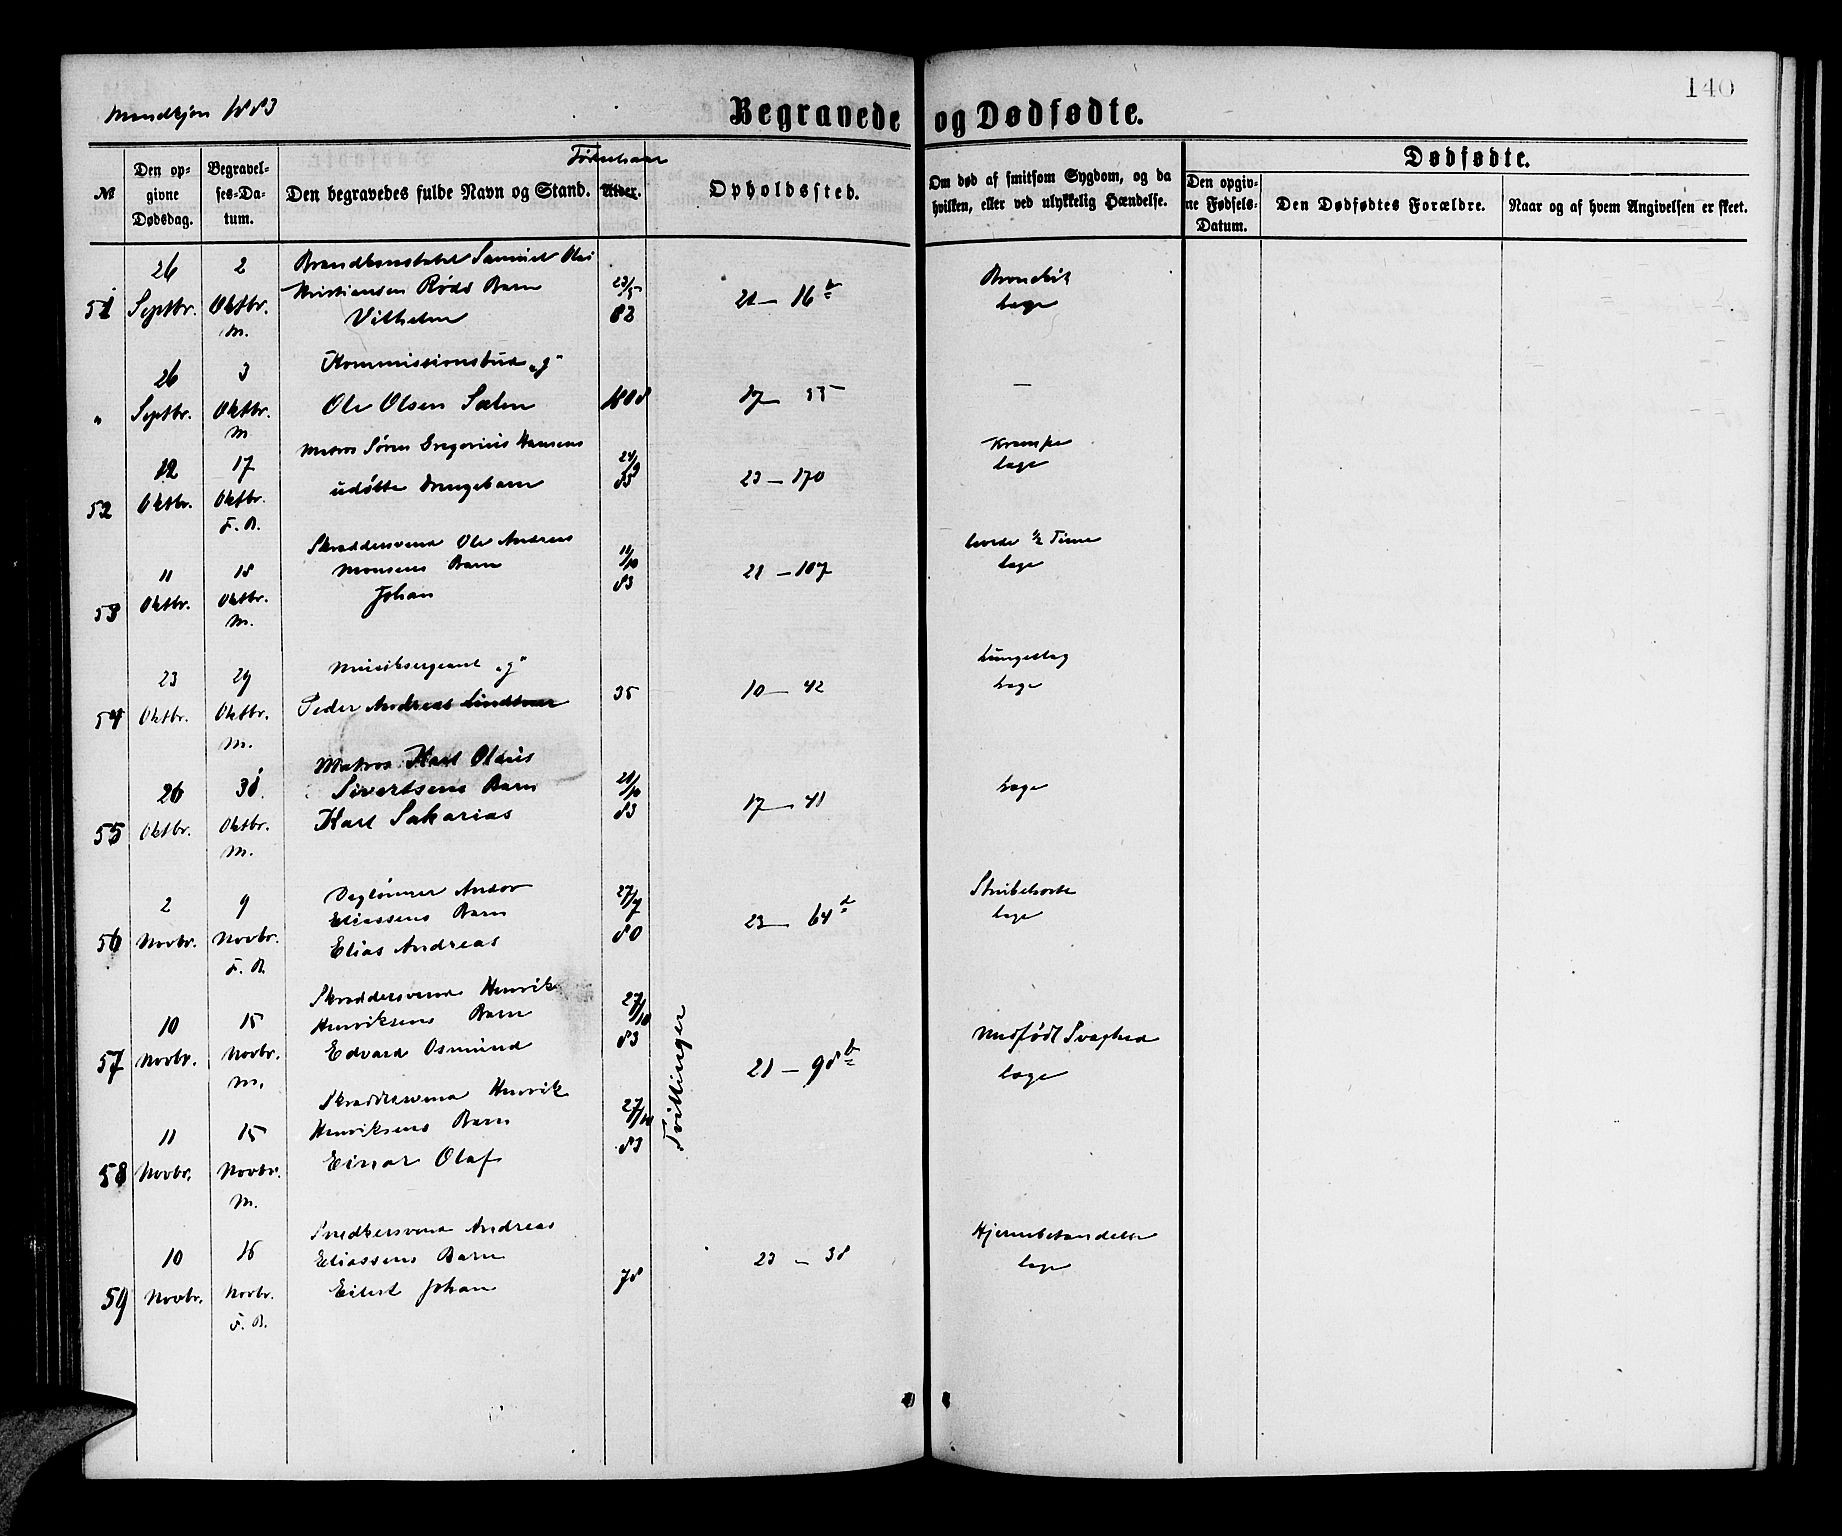 140
Mandkjøn 1883
Begravede og Dødfødte.
№
Den op-
givne
Dødsdag.
Begravel-
ses-Da-
tum.
Den begravedes fulde Navn og Stand.
Fødselsaar
Alder.
Opholdssted.
Om død af smitsom Sygdom, og da
hvilken, eller ved ulykkelig Hændelse.
Dødfødte.
Den opgiv-
ne Fødsels-
Datum.
Den Dødfødtes Forældre.
Naar og af hvem Angivelsen er skeet.
51
26
Septbr.
2
Oktbr.
M.
Brandkonstabel Samuel
Kristiansen Røds Barn
Vilhelm
23/5
82
21 — 16 b
Bronchit
læge
"
26
Septbr.
3
Oktbr.
M
Kommissionsbud „g"
Ole Olsen Salen
1808
17 —
—
52
12
Oktbr.
17
Oktbr.
F. A.
Matros Søren Gregorius Hansens
udøbte Drengebarn
24/9
83
23 — 170
Krampe
læge
53
11
Oktbr.
18
Oktbr.
M.
Skræddersvend Ole Andreas
Monsens Barn
Johan
11/10
83
21 — 107
levede ½ Time
læge
54
23
Oktbr.
29
Oktbr.
M.
Musiksergeant „g"
Peder Andreas
35
10 — 42
Lungeslag
læge
55
26
Oktbr.
30
Oktbr.
M.
Matros Karl Olaus
Sivertsens Barn
Karl Sakarias
21/10
83
17 — 41
læge
56
2
Novbr.
9
Novbr.
F. A.
Daglønner
Eliassens Barn
Elias Andreas
27/7
80
23 — 64 d
Strubehoste
læge
57
10
Novbr.
15
Novbr.
M.
Skræddersvend Henrik
Henriksens Barn
Edvard Osmund
27/10
83
Tvillinger
21 — 98 b
Medfødt Svaghed
læge
58
11
Novbr.
15
Novbr.
M.
Skræddersvend Henrik
Henriksens Barn
Einar Olaf
27/10
83
59
10
Novbr.
16
Novbr.
F. A.
Snedkersvend Andreas
Eliassens Barn
Eilert Johan
78
23 — 38
Hjernebetændelse
læge